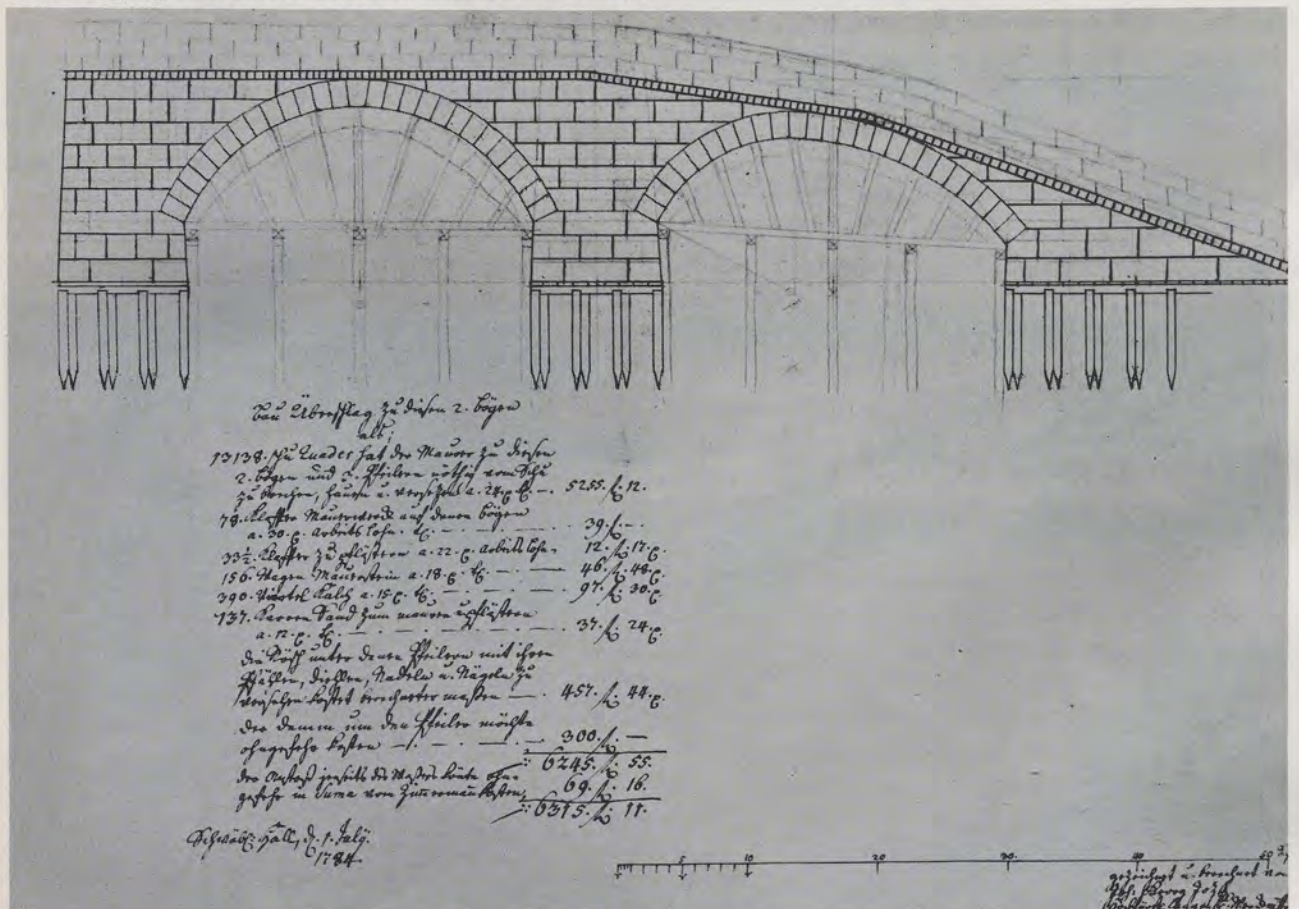 Bau Überschlag zu diesen 2. Bögen
als;
13138. Schu Quader hat der Maurer zu diesen
2. Bögen und Pfeilern nöthig vom Schu
zu brechen, hauen u. versezen a. 24. — 5255. f. 12.
78. Klaffter Mauerwerck auf denen bögen
a. 30. arbeits lohn — 39. f. —
33½. Klaffter zu pflästern a. 22. arbeits lohn. 12. f. 17.
156. Wagen Mauerstein a. 18. — 46. f. 48.
390. Viertel Kalch a. 15. — 97. f. 30.
137. Karren Sand zum mauren u. pflästern
a. 12. — 37. f. 24.
die Röst unter denen Pfeilern mit ihren
Pfählen, diehlen, Nadeln u. Nägeln zu
versehen kostet berechneter maßen — 457. f. 44.
der damm um den Pfeiler möchte
ohngefehr kosten — 300. f. —
6245. f. 55.
der jenseits des könte ohn-
gefehr in Suma vom Zimmermañ kosten, 69. f. 16.
6315. f. 11.
Schwäb: Hall, d. 1. July.
1784.
5 10 20 30. 40 50
gezeichnet u. berechnet von
Joh. Georg